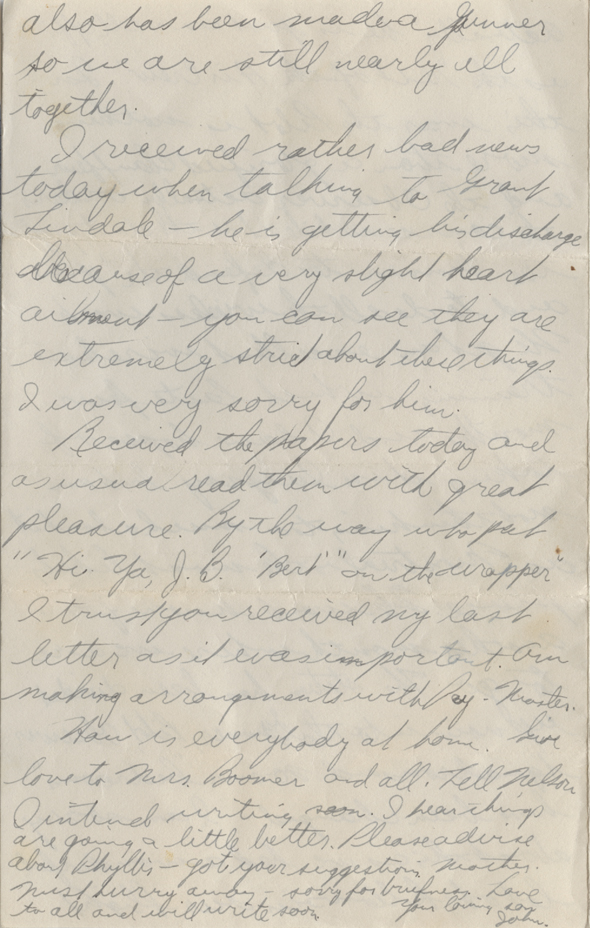 also has been made a gunner
so we are still nearly all
together.
I received rather bad news
today when talking to Grant
Lindale - he is getting his discharge
because of a very slight heart
ailment - you can see they are
extremely strict about these things.
I was very sorry for him.
Received the papers today and
as usual read them with great
pleasure. By the way who put
"Hi. Ya, J. B. 'Bert'" on the wrapper
I trust you received my last
letter as it was important. Am
making arrangements with Pay-Master.
How is everybody at home. Give
love to Mrs. Boomer and all. Tell Nelson
I intend writing soon. I hear things
are going a little better. Please advise
about Phyllis - got your suggestion, mother.
Must hurry away - sorry for briefness. Love
to all and will write soon
Your loving son
John.